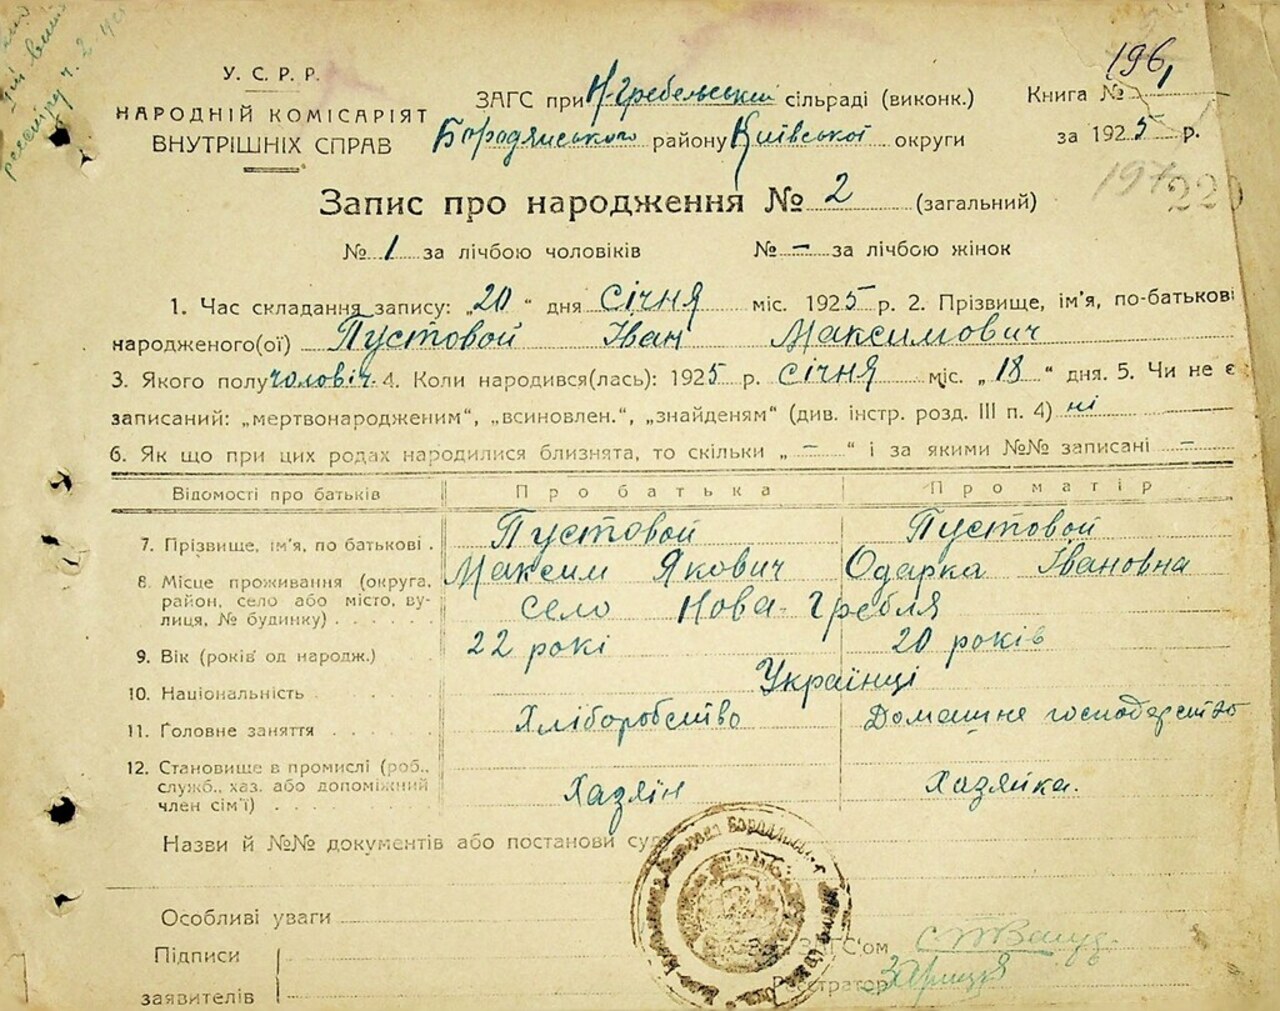 У. С. Р. Р.
НАРОДНІЙ КОМІСАРІЯТ
ВНУТРІШНІХ СПРАВ
ЗАГС при Н-Гребельській сільраді (виконк.)
Бородянського району Київської округи
196
Книга №
за 1925 р.
197
220
Запис про народження № 2 (загальний)
№ 1 за лічбою чоловіків № – за лічбою жінок
1. Час складання запису: „20" дня січня міс. 1925 р. 2. Прізвище, ім'я, по-батькові
народженого(ої) Пустовой Іван Максимович
3. Якого полу чоловіч. 4. Коли народився(лась): 1925 р. січня міс. „18" дня. 5. Чи не є
записаний: „мертвонародженим", „всиновлен.", „знайденям" (див. інстр. розд. III п. 4) ні
6. Як що при цих родах народилися близнята, то скільки „ – " і за якими №№ записані –
Відомості про батьків Про батька Про матір
7. Прізвище, ім'я, по батькові . Пустовой Пустовой
Максим Якович Одарка Івановна
8. Місце проживання (округа, район, село або місто, ву-
лиця, № будинку) . . . . . . село Нова-Гребля
9. Вік (років од народж.) 22 рокі 20 років
10. Національність . . . . . Українці
11. Головне заняття . . . . . Хліборобство Домашне господарство
12. Становище в промислі (роб.,
служб., хаз. або допоміжний
член сім'ї) . . . Хазяін Хазяйка.
Назви й №№ документів або постанови суд
Особливі уваги
Підписи
заявителів
Зав. ЗАГС'ом
Реєстратор